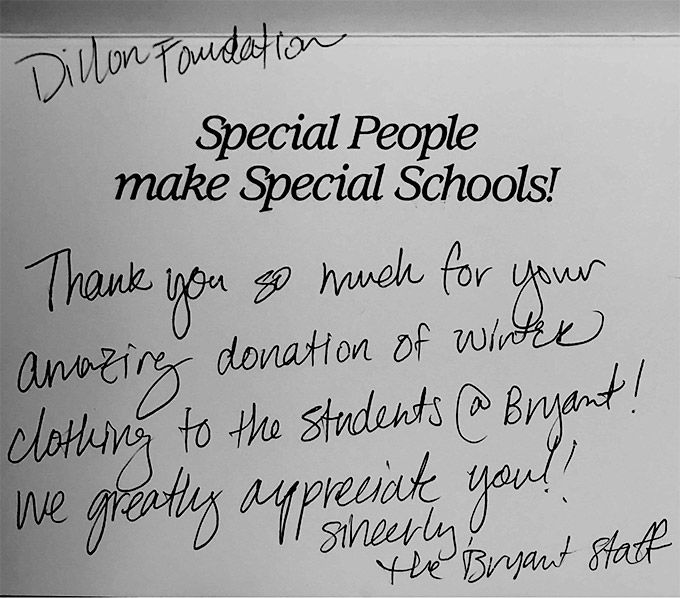 Dillon Foundation
Special People
make Special Schools!
Thank you so much for your
amazing donation of winter
clothing to the students @ Bryant!
we greatly appreciate you!!
sincerly,
the Bryant Staff